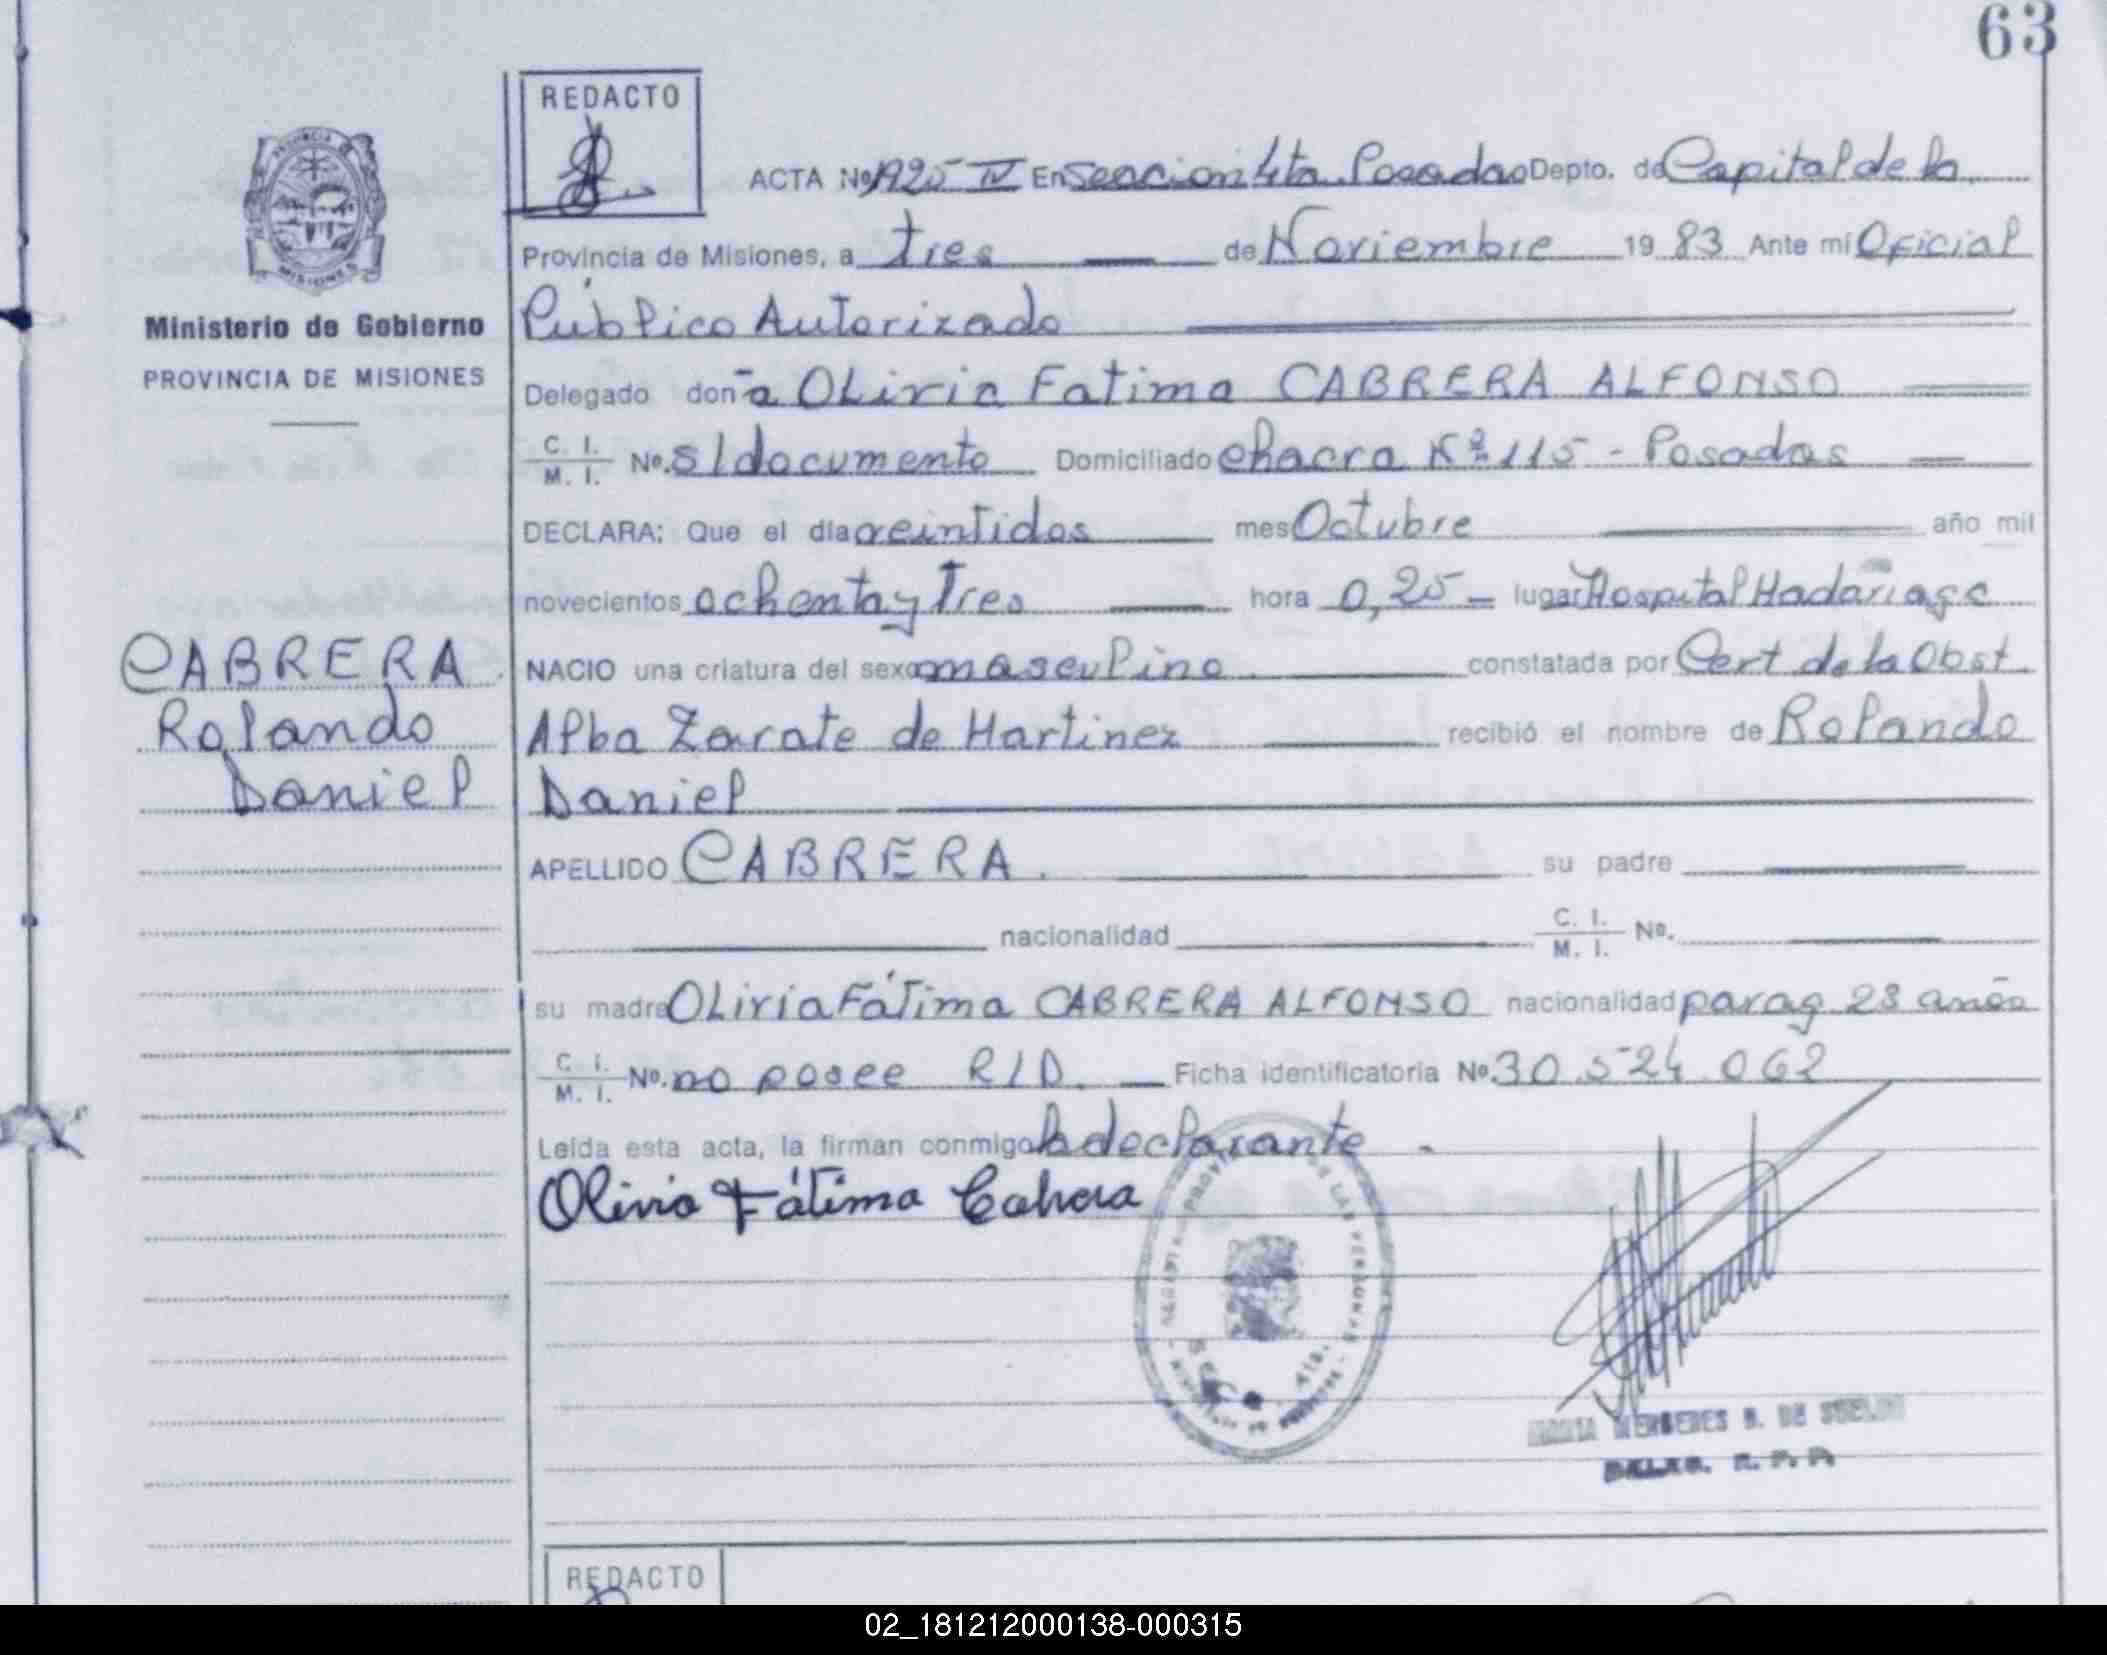 63
REDACTO
ACTA No. 1925 IV En Seccion 4ta. Posadas Depto. de Capital de la
Provincia de Misiones, a tres de Noviembre 1983 Ante mí Oficial
Público Autorizado
Ministerio de Gobierno
PROVINCIA DE MISIONES
Delegado doña Oliria Fatima CABRERA ALFONSO
C. I.
M. I. No. s/documento Domiciliado chacra Nº 115 - Posadas
DECLARA: Que el día veintidos mes Octubre año mil
novecientos ochenta y Tres hora 0,25 lugar Hospital Madariaga
CABRERA
Rolando
Daniel
NACIO una criatura del sexo masculino constatada por Cert de la Obst.
Alba Zarate de Martinez recibió el nombre de Rolando
Daniel
APELLIDO CABRERA. su padre
nacionalidad C. I.
M. I. No.
su madre Oliria Fátima CABRERA ALFONSO nacionalidad parag. 23 años
C. I.
M. I. No. no posee R/D. Ficha identificatoria No. 30.524.062
Leída esta acta, la firman conmigo la declarante
Oliria Fátima Cabrera
MERCEDES B. DE
REDACTO
02_181212000138-000315